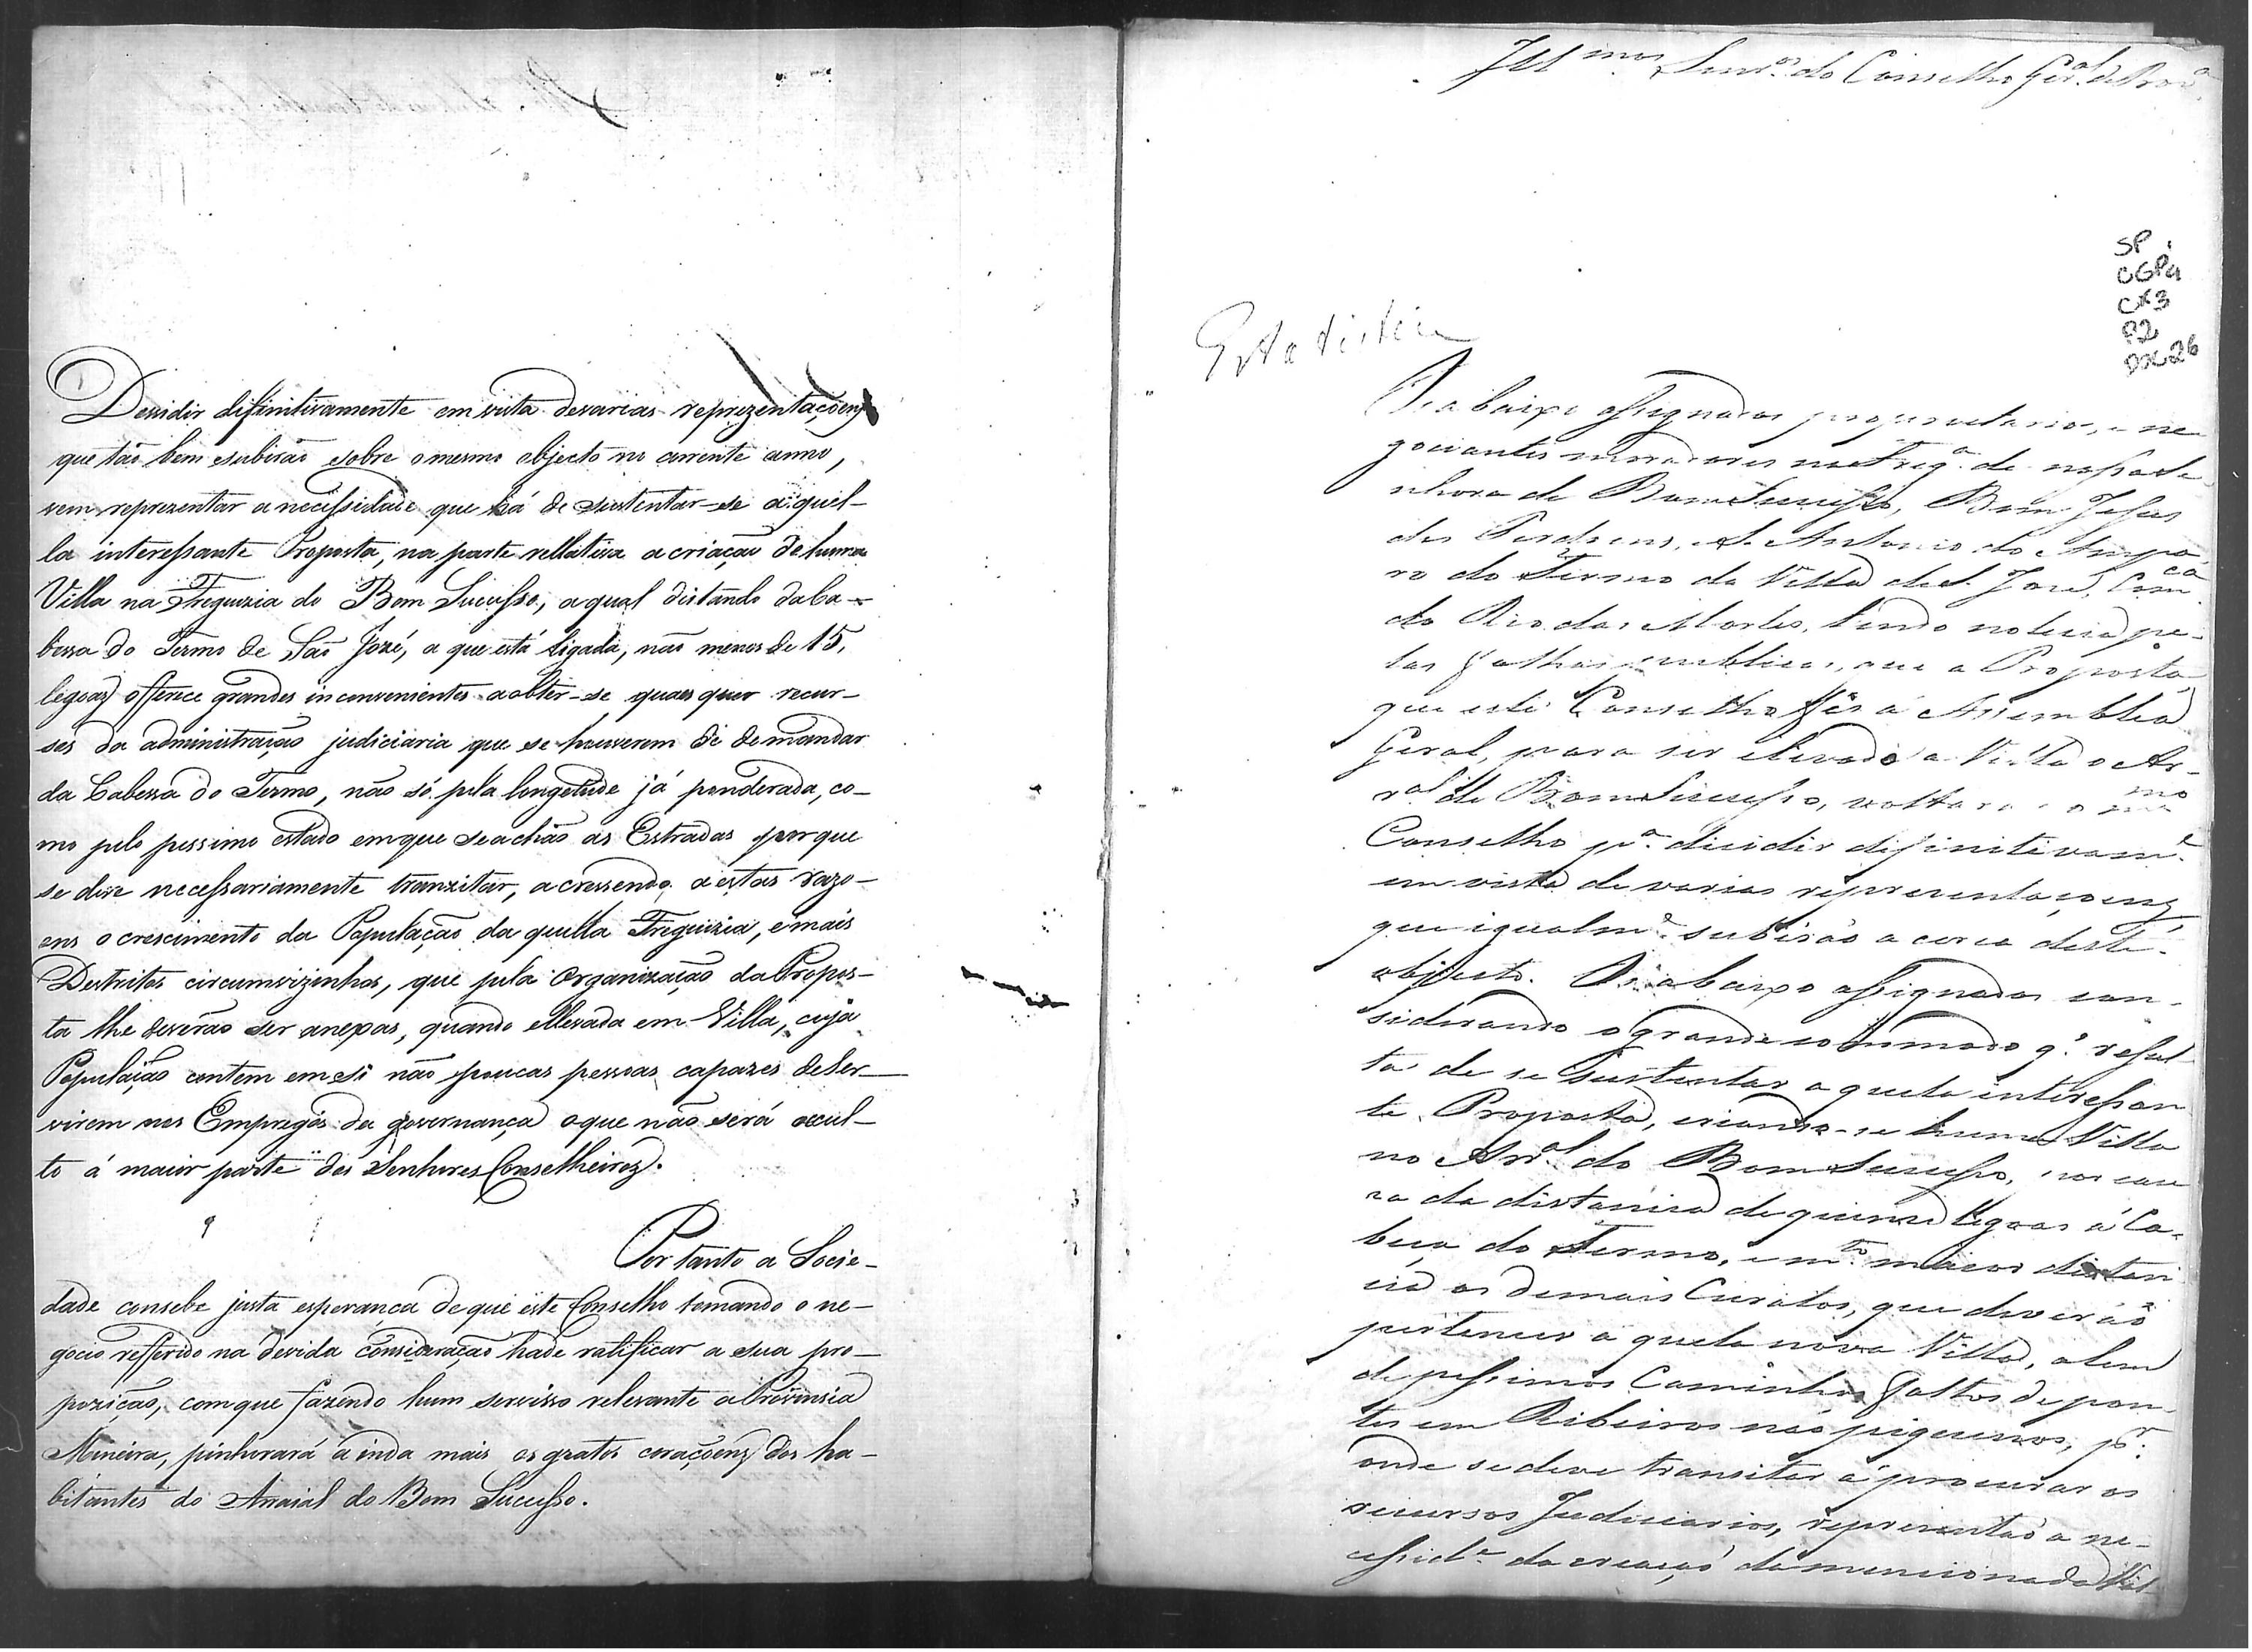 Dessidir difinitivamente em vista devarias reprezentaçoens
que tão bem subirão sobre o mesmo objecto no corrente anno,
vem reprezentar a necessidade que há de sustentar-se aquel-
la interessante Proposta, na parte rellativa a criação de huma
Villa na Freguezia do Bom Sucesso, a qual distando da Ca-
bessa do Termo de São Jozé, a que está ligada, não menos de 15,
legoas offerece grandes inconvenientes a obter-se quaes quer recur-
sos da administração judiciaria que se houverem de demandar
da Cabessa do Termo, não só pela longetude já ponderada, co-
mo pelo pessimo estado em que se achão as Estradas por que
se deve necessariamente tranzitar, a cressendo a estas razo-
ens o crescimento da População da quella Freguizia, e mais
Destritos circumvizinhos, que pela Organização da Propos-
ta lhe deverão ser anexos, quando ellevada em Villa, cuja
População contem em si não poucas pessoas capazes de ser-
virem nos Empregos da governança o que não será ocul-
to á maior parte dos Senhores Conselheiros.
Por tanto a Socie-
dade consebe justa esperança de que este Conselho tomando o ne-
gocio refferido na devida consideração hade ratificar a sua pro-
pozição, com que fazendo hum servisso relevante a Provinsia
Mineira, pinhorará a inda mais os gratos coraçoens dos ha-
bitantes do Arraial do Bom Sucesso.
Ill.mos Senr.es do Conselho Ger.al da Prov.a
SP
CGP1
CX3
P2
DOC26
Estatistica
Os abaixo assignados proprietarios, e ne-
gociantes moradores na Freg.a de nossa Se
nhora do Bom Sucesso, Bom Jesus
dos Perdoens, e S. Antonio do Ampa
ro do Termo da Villa de S. José, Com.ca
do Rio das Mortes, tendo noticia pe-
las folhas publicas, que a Proposta
que este Conselho fês á Assemblea
Geral, para ser elevado a Villa o Ar-
r.al do Bom Sucesso, voltara ao m.mo
Conselho p.a dicidir difinitivam.e
em vista de varias reprezentaçoens
que igualm.e subirão a cerca deste
objecto. Os abaixo assignados con-
siderando o grande commodo q.e resul
ta de se sustentar a quela interessan
te Proposta, criando-se huma Villa
no Arr.al do Bom Sucesso, por cau
za da distancia de quinze legoas á Ca-
beça do Termo, e m.to maior distan
cia os demais Curatos, que deverão
pertencer a quela nova Villa, alem
de pessimos Caminhos faltos de pon-
tes em Ribeiros não piquenos, p.r
onde se deve transitar a procurar os
recursos Judiciarios, reprezentão a ne-
cessid.e da creação da mencionada Vil-